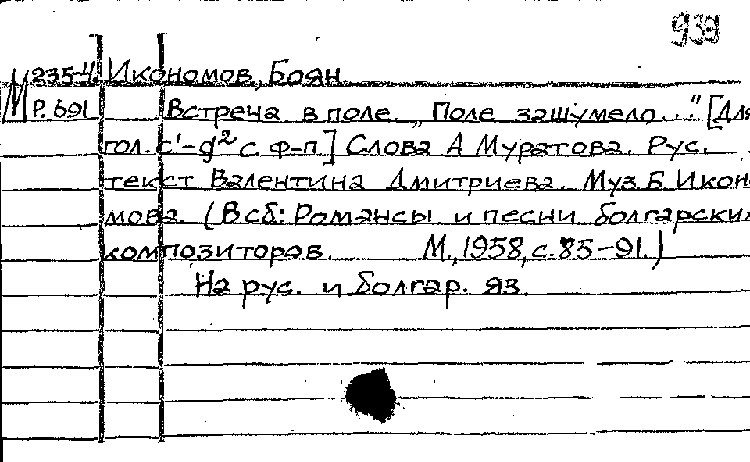 939
М 235-4 Икономов, Боян
Р. 691 Встреча в поле. „Поле зашумело..." [Для
гол. c'-g² с ф-п.] Слова А Муратова. Рус.
текст Валентина Дмитриева. Муз. Б. Иконо
мова. (В сб: Романсы и песни болгарских
композиторов. М., 1958, с. 85-91.)
На рус. и болгар. яз.